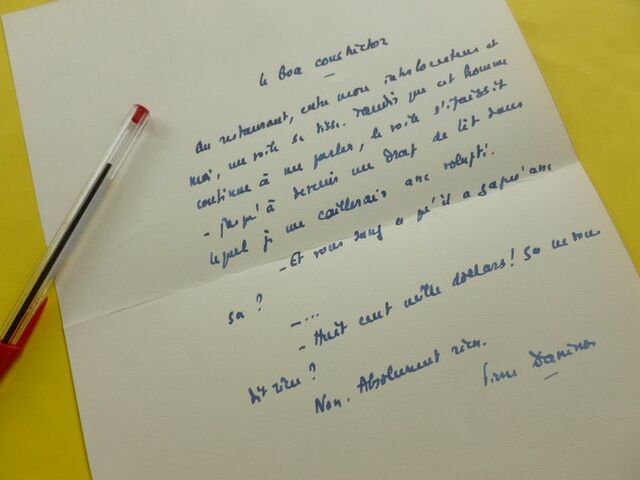 Le Boa constrictor
Au restaurant, entre mon interlocuteur et
moi, un voile se tisse. Tandis que cet homme
continue à me parler, le voile s'épaissit
- jusqu'à devenir un drap de lit dans
lequel je me
- Et vous savez ce qu'il a gagné avec
ça ?
- ...
- Huit cent mille dollars ! Ça ne vous
dit rien ?
Non. Absolument rien.
Pierre Daninos